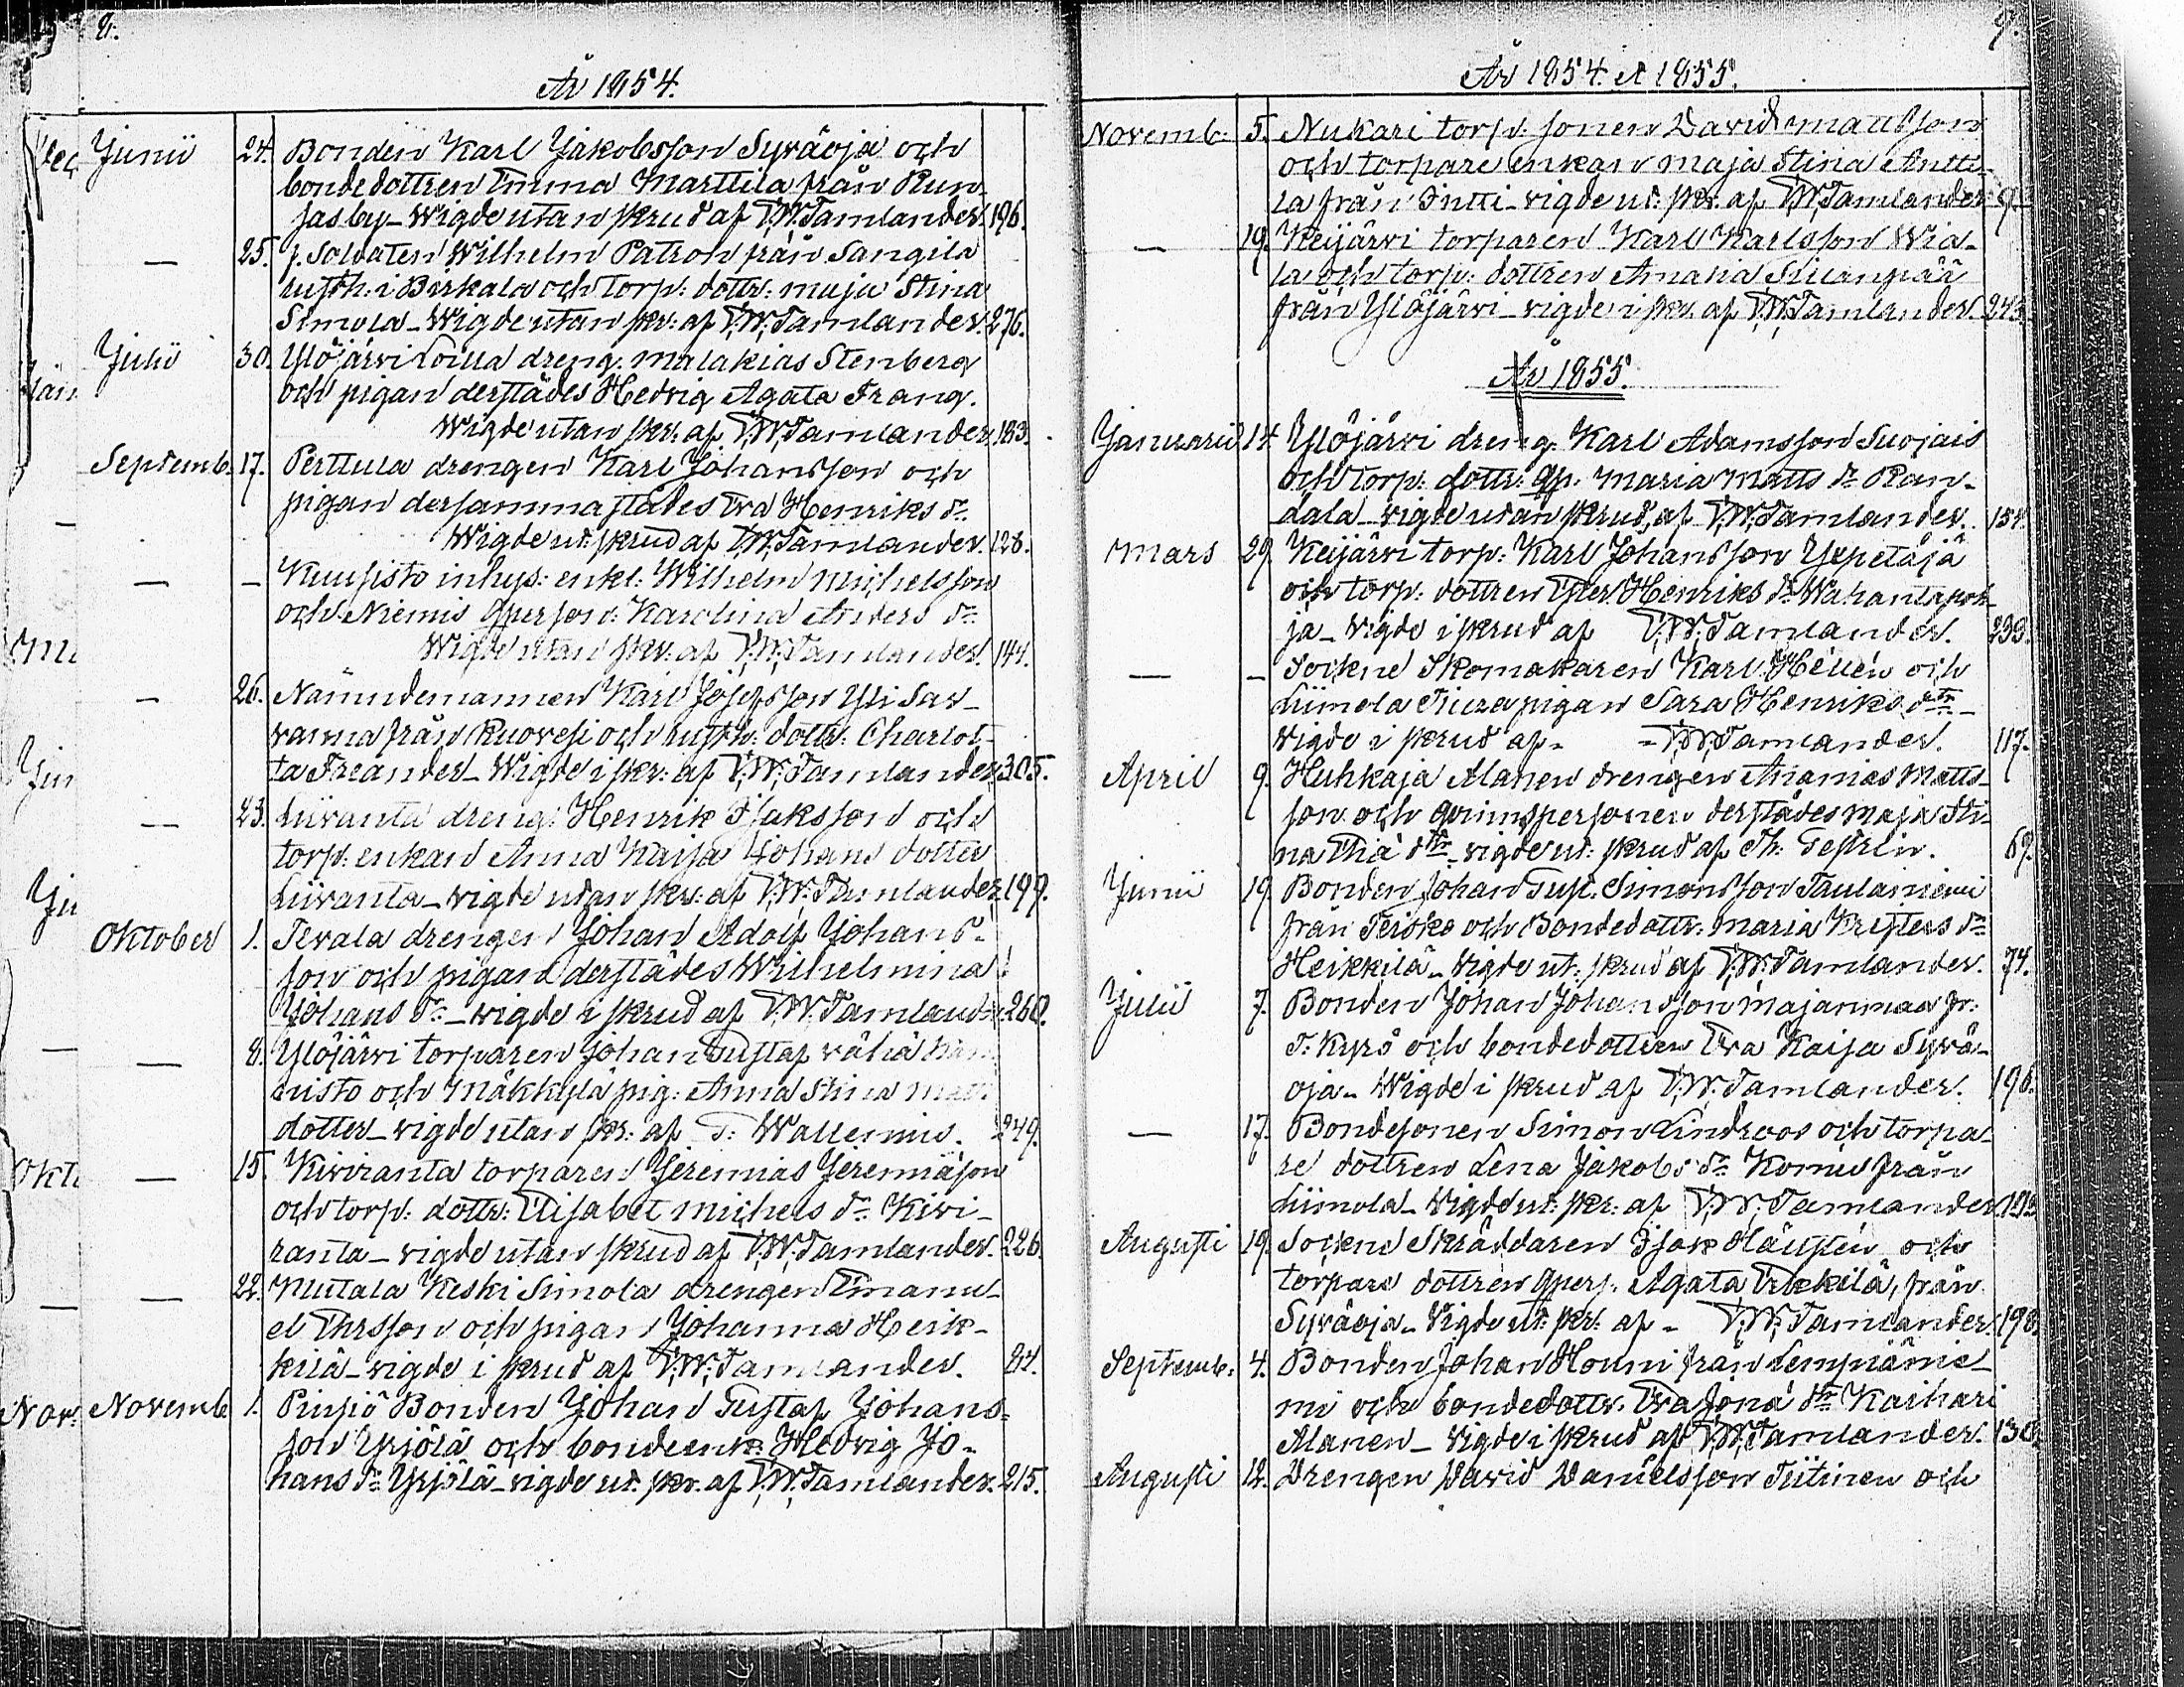 8.
År 1854.
Junii 24. Bonden Karl Jakobsson Syväoja och
bondedottren Emma Marttila från Run-
jasby - Wigde utan skrud af V.W.Tamlander. 196.
— 25. f. Soldaten Wilhelm Patron från Sangila
rusth: i Birkala och Torp: dottr: Maja Stina
Simola - Wigde utan skr: af V.W.Tamlander. 276.
Julii 30. Ylöjärvi Loilla dreng. Malakias Stenberg
och pigan derstädes Hedvig Agata Frang.
Wigde utan skr. af V.W.Tamlander. 183.
Septemb. 17. Perttula drengen Karl Johansson och
pigan dersammastädes Eva Henriks dr.
Wigde ut: skrud af V.W.Tamlander. 128.
— – Kuusisto inhys: enkl: Wilhelm Michelsson
och Niemis qperson: Karolina Anders dr.
Wigde utan skr: af V.W.Tamlander. 144.
— 26. Nämndemannen Karl Josefsson Yli Sav-
vanna från Ruovesi och rusth: dottr: Charlot-
ta Freander - Wigde i skr: af V.W.Tamlander. 305.
— 23. Liivanta dreng: Henrik Isaksson och
torp: enkan Anna Kaisa Johans dotter
Liivanta - vigde utan skr: af V.W.Tamlander 199.
Oktober 1. Tevala drengen Johan Adolf Johans-
son och pigan derstädes Wilhelmina
Johans dr. - vigde i skrud af V.W.Tamlander. 260.
— 8. Ylöjärvi torparen Johan Gustaf vähä
nisto och Mäkkylä pig: Anna Stina
dotter - vigde utan skr: af T: Wallenius. 249.
— 15. Kiviranta torparen Jeremias Jeremiason
och torp: dottr: Elisabet Michels dr. Kivi-
ranta - vigde utan skrud af V.W.Tamlander. 226.
— 22. Mutala Keski Simola drengen Emanu-
el Ersson och pigan Johanna Heik-
kilä - vigde i skrud af V.W.Tamlander. 24.
Novemb. 1. Pinsiö Bonden Johan Gustaf Johans-
son Yrjölä och bondeenk: Hedvig Jo-
hans dr. Yrjölä - vigde ut. skr. af V.W.Tamlander. 215.
9.
År 1854. et 1855.
Novemb: 5. Nukari torp: sonen David Mattsson
och torpare enkan Maja Stina Antti-
la från Intti - vigde ut: skr. af V.W.Tamlander. 9.
— 19. Keijärvi torparen Karl Karlsson Wia-
la och torp: dottren Amalia Siltanpää
från Ylöjärvi - vigde i skr. af V.W.Tamlander. 243.
År 1855.
Januarii 14. Ylöjärvi dreng. Karl Adamsson Suojais
och torp: dottr: qp. Maria Matts dr. Ran-
dala - vigde utan skrud, af V.W.Tamlander. 154.
Mars 29. Keijärvi torp: Karl Johansson Yxpetäjä
och torp: dottren Ester Henriks dr. Wahantapoh-
ja - vigde i skrud af V.W.Tamlander. 239.
— – Sockne Skomakaren Karl Hellén och
Liimola pigan Sara Henriks dtr. -
vigde i skrud af - - V.W.Tamlander. 117.
April 9. Huhkaja Alanen drengen Ananias Matts-
son och qvinnspersonen derstädes Maja Sti-
na dtr. - vigde ut: skrud af Th: Gestrin. 69.
Junii 19. Bonden Johan Gust. Simonsson Taulaniemi
från Teisko och Bondedottr: Maria Kristers dr.
Heikkilä - Vigde ut: skrud af V.W.Tamlander. 74.
Julii 7. Bonden Johan Johansson Majanmaa fr:
T: Kyrö och bondedottren Eva Kaisa Syvä-
oja - Wigde i skrud af V.W.Tamlander. 196.
— 17. Bondesonen Simon Lindroos och torpa-
re dottren Lena Jakobs dr. Komis från
Liimola - Vigde ut: skr: af V.W.Tamlander.
Augusti 19. Sockne Skräddaren Isak Hällstén och
torpare dottren qpers. Agata Erkkilä, från
Syväoja - Vigde ut: skr: af - V.W.Tamlander. 198.
Septemb: 4. Bonden Johan Honni från Lempiänie-
mi och bondedottr. Eva Jona dr. Kaihari
Alanen - Vigde i skrud af V.W.Tamlander. 130.
Augusti 12. Drengen David Danielsson Tiitinen och